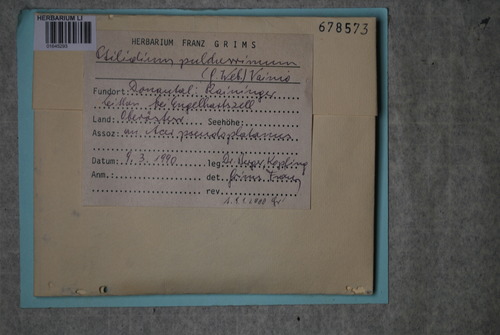 HERBARIUM LI
678573
HERBARIUM FRANZ GRIMS
Ptilidium pulcherrimum
(G. Web.) Vainio
Fundort: Donautal: Raininger
bei Engelhartszell
Land: Oberösterr. Seehöhe:
Assoz: an Acer pseudoplatanus
Datum: 9.3.1990 leg. Dr.
Anm.: det. Grims Franz
rev.